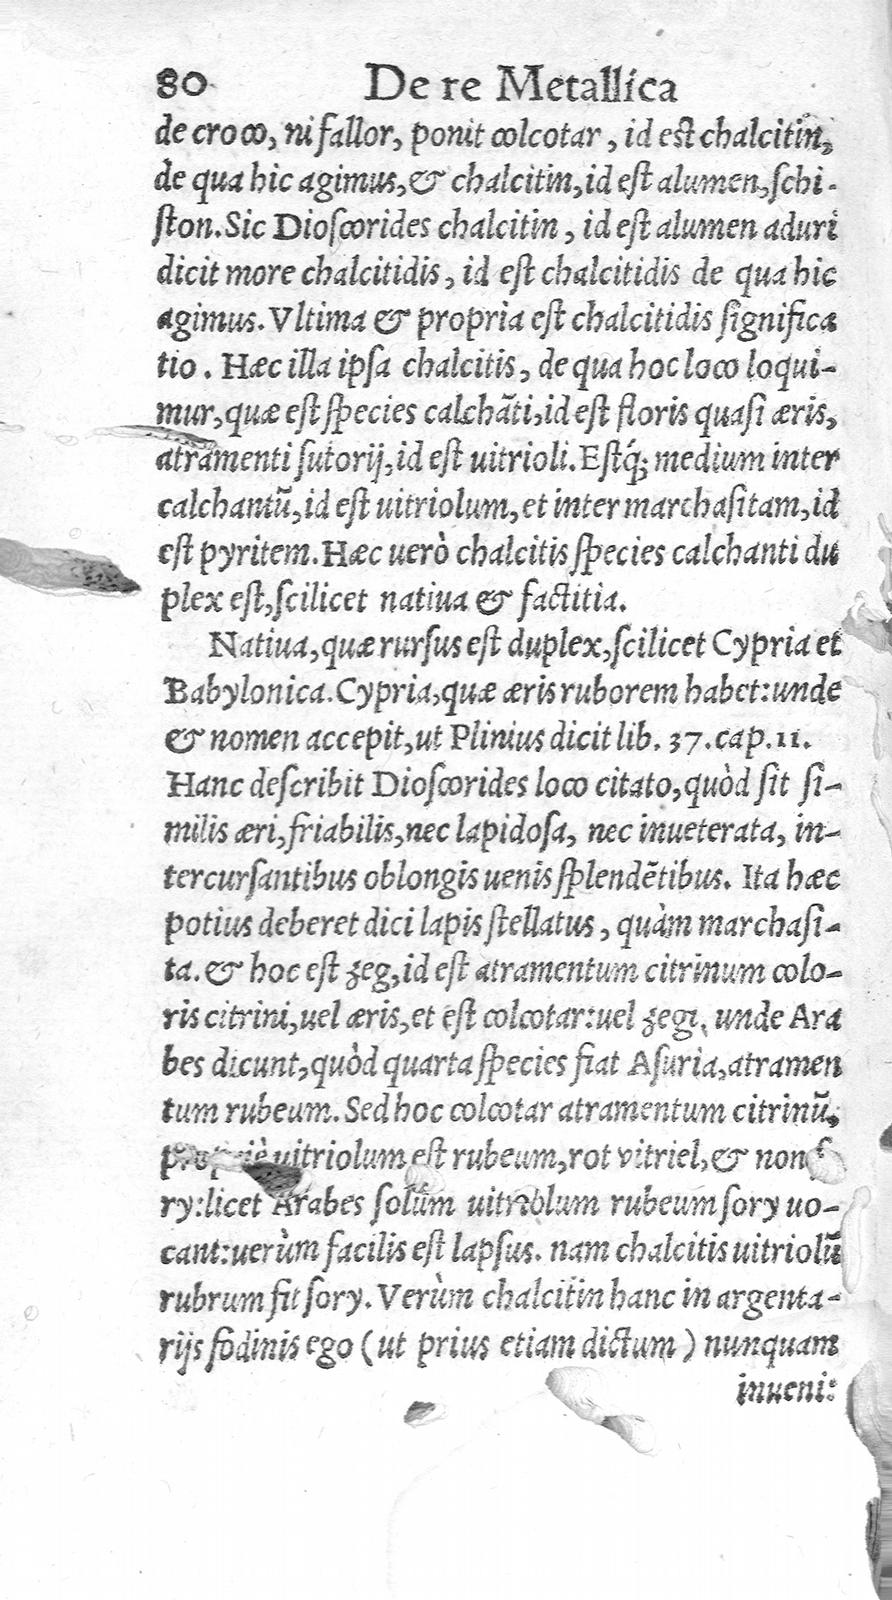 80 De re Metallica
de croco, ni fallor, ponit colcotar, id est chalcitin,
de qua hic agimus, & chalcitin, id est alumen, schi-
ston. Sic Dioscorides chalcitin, id est alumen aduri
dicit more chalcitidis, id est chalcitidis de qua hic
agimus. Vltima & propria est chalcitidis significa
tio. Hæc illa ipsa chalcitis, de qua hoc loco loqui-
mur, quæ est species calchãti, id est floris quasi æris,
atramenti sutorij, id est uitrioli. Estq́; medium inter
calchantũ, id est uitriolum, et inter marchasitam, id
est pyritem. Hæc uerò chalcitis species calchanti du
plex est, scilicet natiua & factitia.
Natiua, quæ rursus est duplex, scilicet Cypria et
Babylonica. Cypria, quæ æris ruborem habet: unde
& nomen accepit, ut Plinius dicit lib. 37. cap. 11.
Hanc describit Dioscorides loco citato, quòd sit si-
milis æri, friabilis, nec lapidosa, nec inueterata, in-
tercursantibus oblongis uenis splendẽtibus. Ita hæc
potius deberet dici lapis stellatus, quàm marchasi-
ta. & hoc est zeg, id est atramentum citrinum colo-
ris citrini, uel æris, et est colcotar: uel zegi, unde Ara
bes dicunt, quòd quarta species fiat Asuria, atramen
tum rubeum. Sed hoc colcotar atramentum citrinũ,
propriè uitriolum est rubeum, rot vitriel, & non
ry: licet Arabes solùm uitriolum rubeum sory uo-
cant: uerùm facilis est lapsus. nam chalcitis uitriolũ
rubrum fit sory. Verùm chalcitin hanc in argenta-
rijs fodinis ego (ut prius etiam dictum) nunquam
inueni: